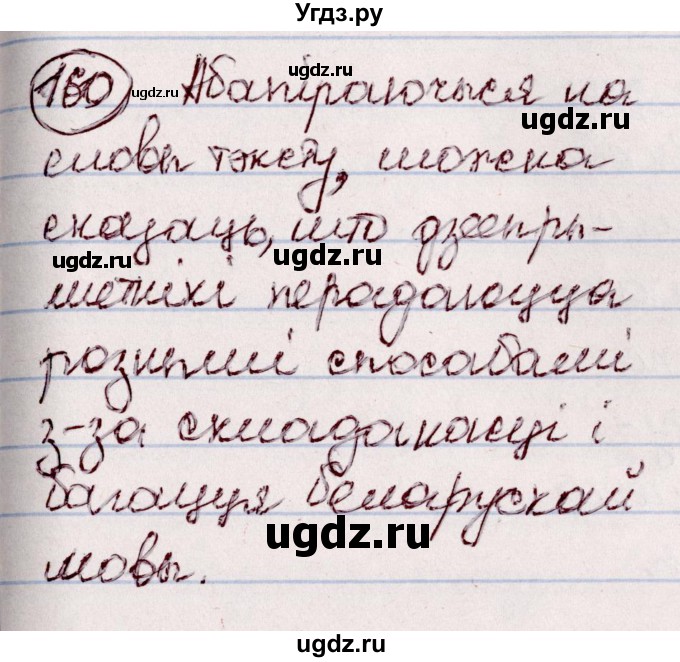 Угдз.ру
160 Абапіраючыся на
словы тэксту, можна
сказаць, што дзеепры-
метнікі перадаюцца
рознымі спосабамі
з-за складанасці і
багацця беларускай
мовы.
ugdz.ru
ugdz.ru
ugdz.ru
ugdz.ru
ugdz.ru
ugdz.ru
ugdz.ru